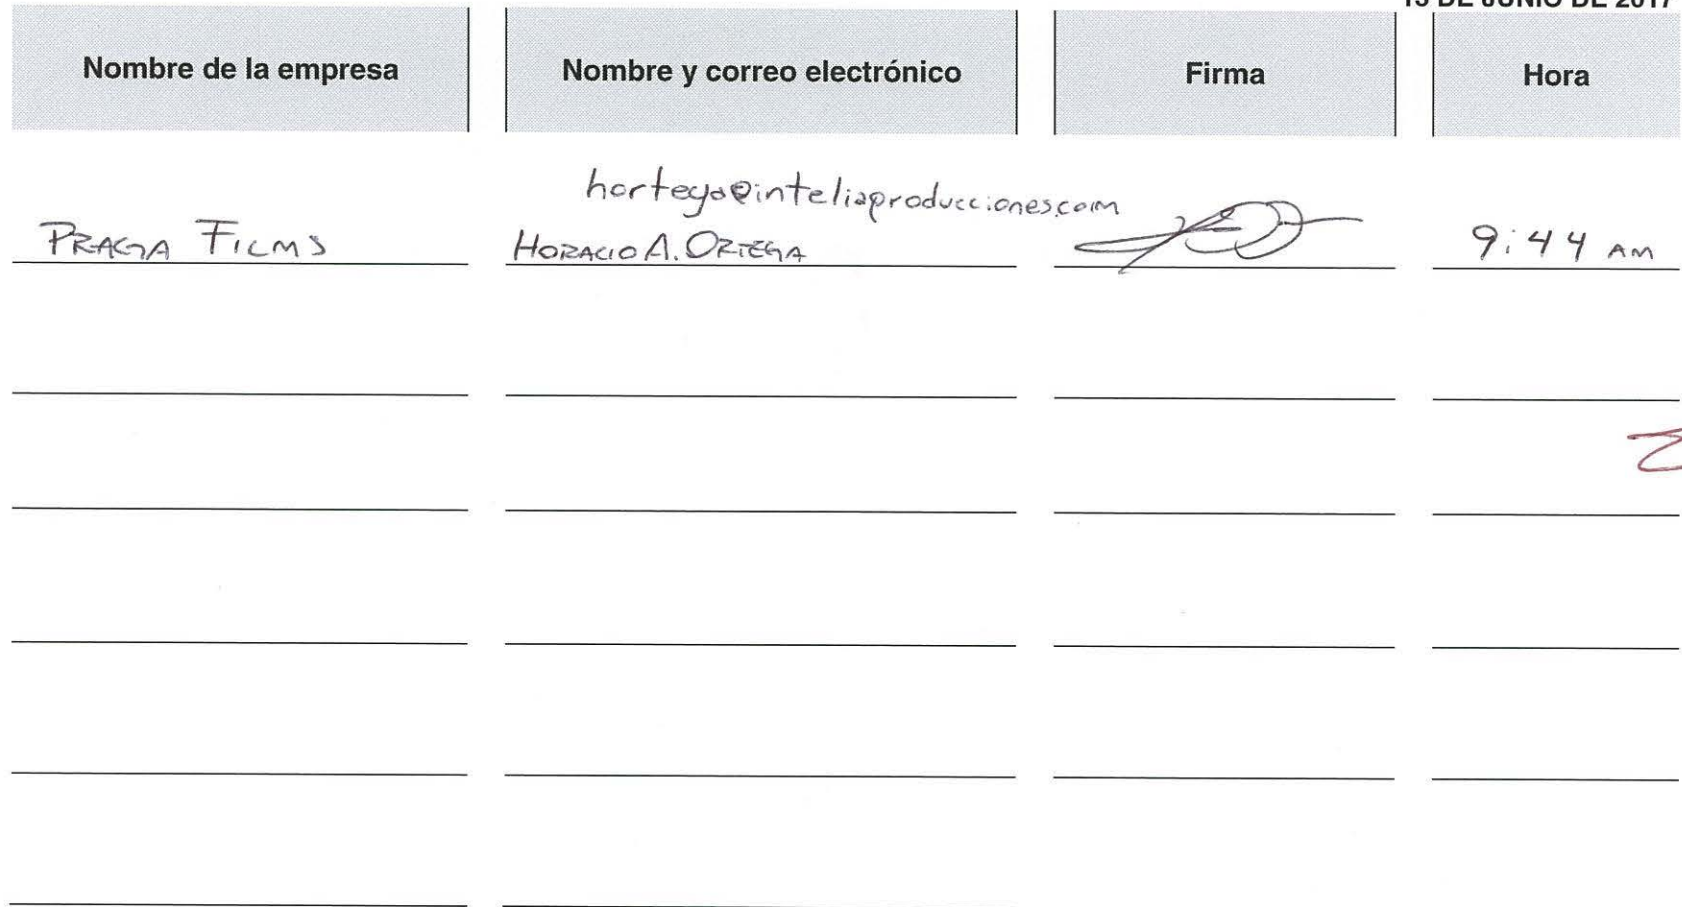 DE JUNIO DE 2017
Nombre de la empresa Nombre y correo electrónico Firma Hora
hortega@inteliaproducciones.com
PRAGA FILMS HORACIO A. ORTEGA 9:44 AM